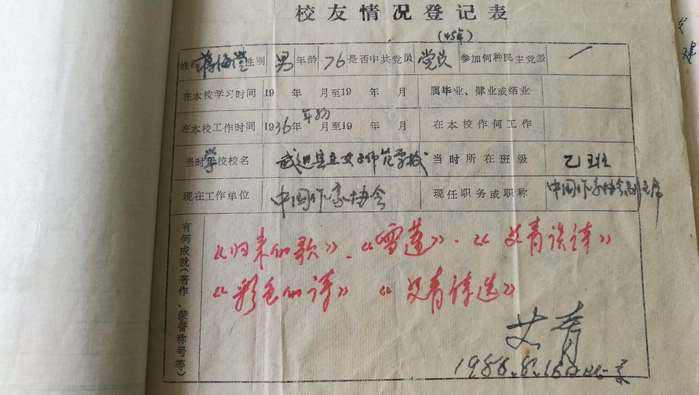 校友情况登记表
(45年)
姓名 蒋海澄 性别 男 年龄 76 是否中共党员 党员 参加何种民主党派
在本校学习时间 19 年 月至19 年 月 属毕业、肄业或结业
在本校工作时间 1936年初 月至19 年 月 在本校作何工作
当时学校校名 武进县立女子师范学校 当时所在班级 乙班
现在工作单位 中国作家协会 现任职务或职称 中国作家协会副主席
有何成就(著作、荣誉称号等)
《归来的歌》、《雪莲》、《艾青谈诗》
《彩色的诗》《艾青诗选》
艾青
1986.8.16日